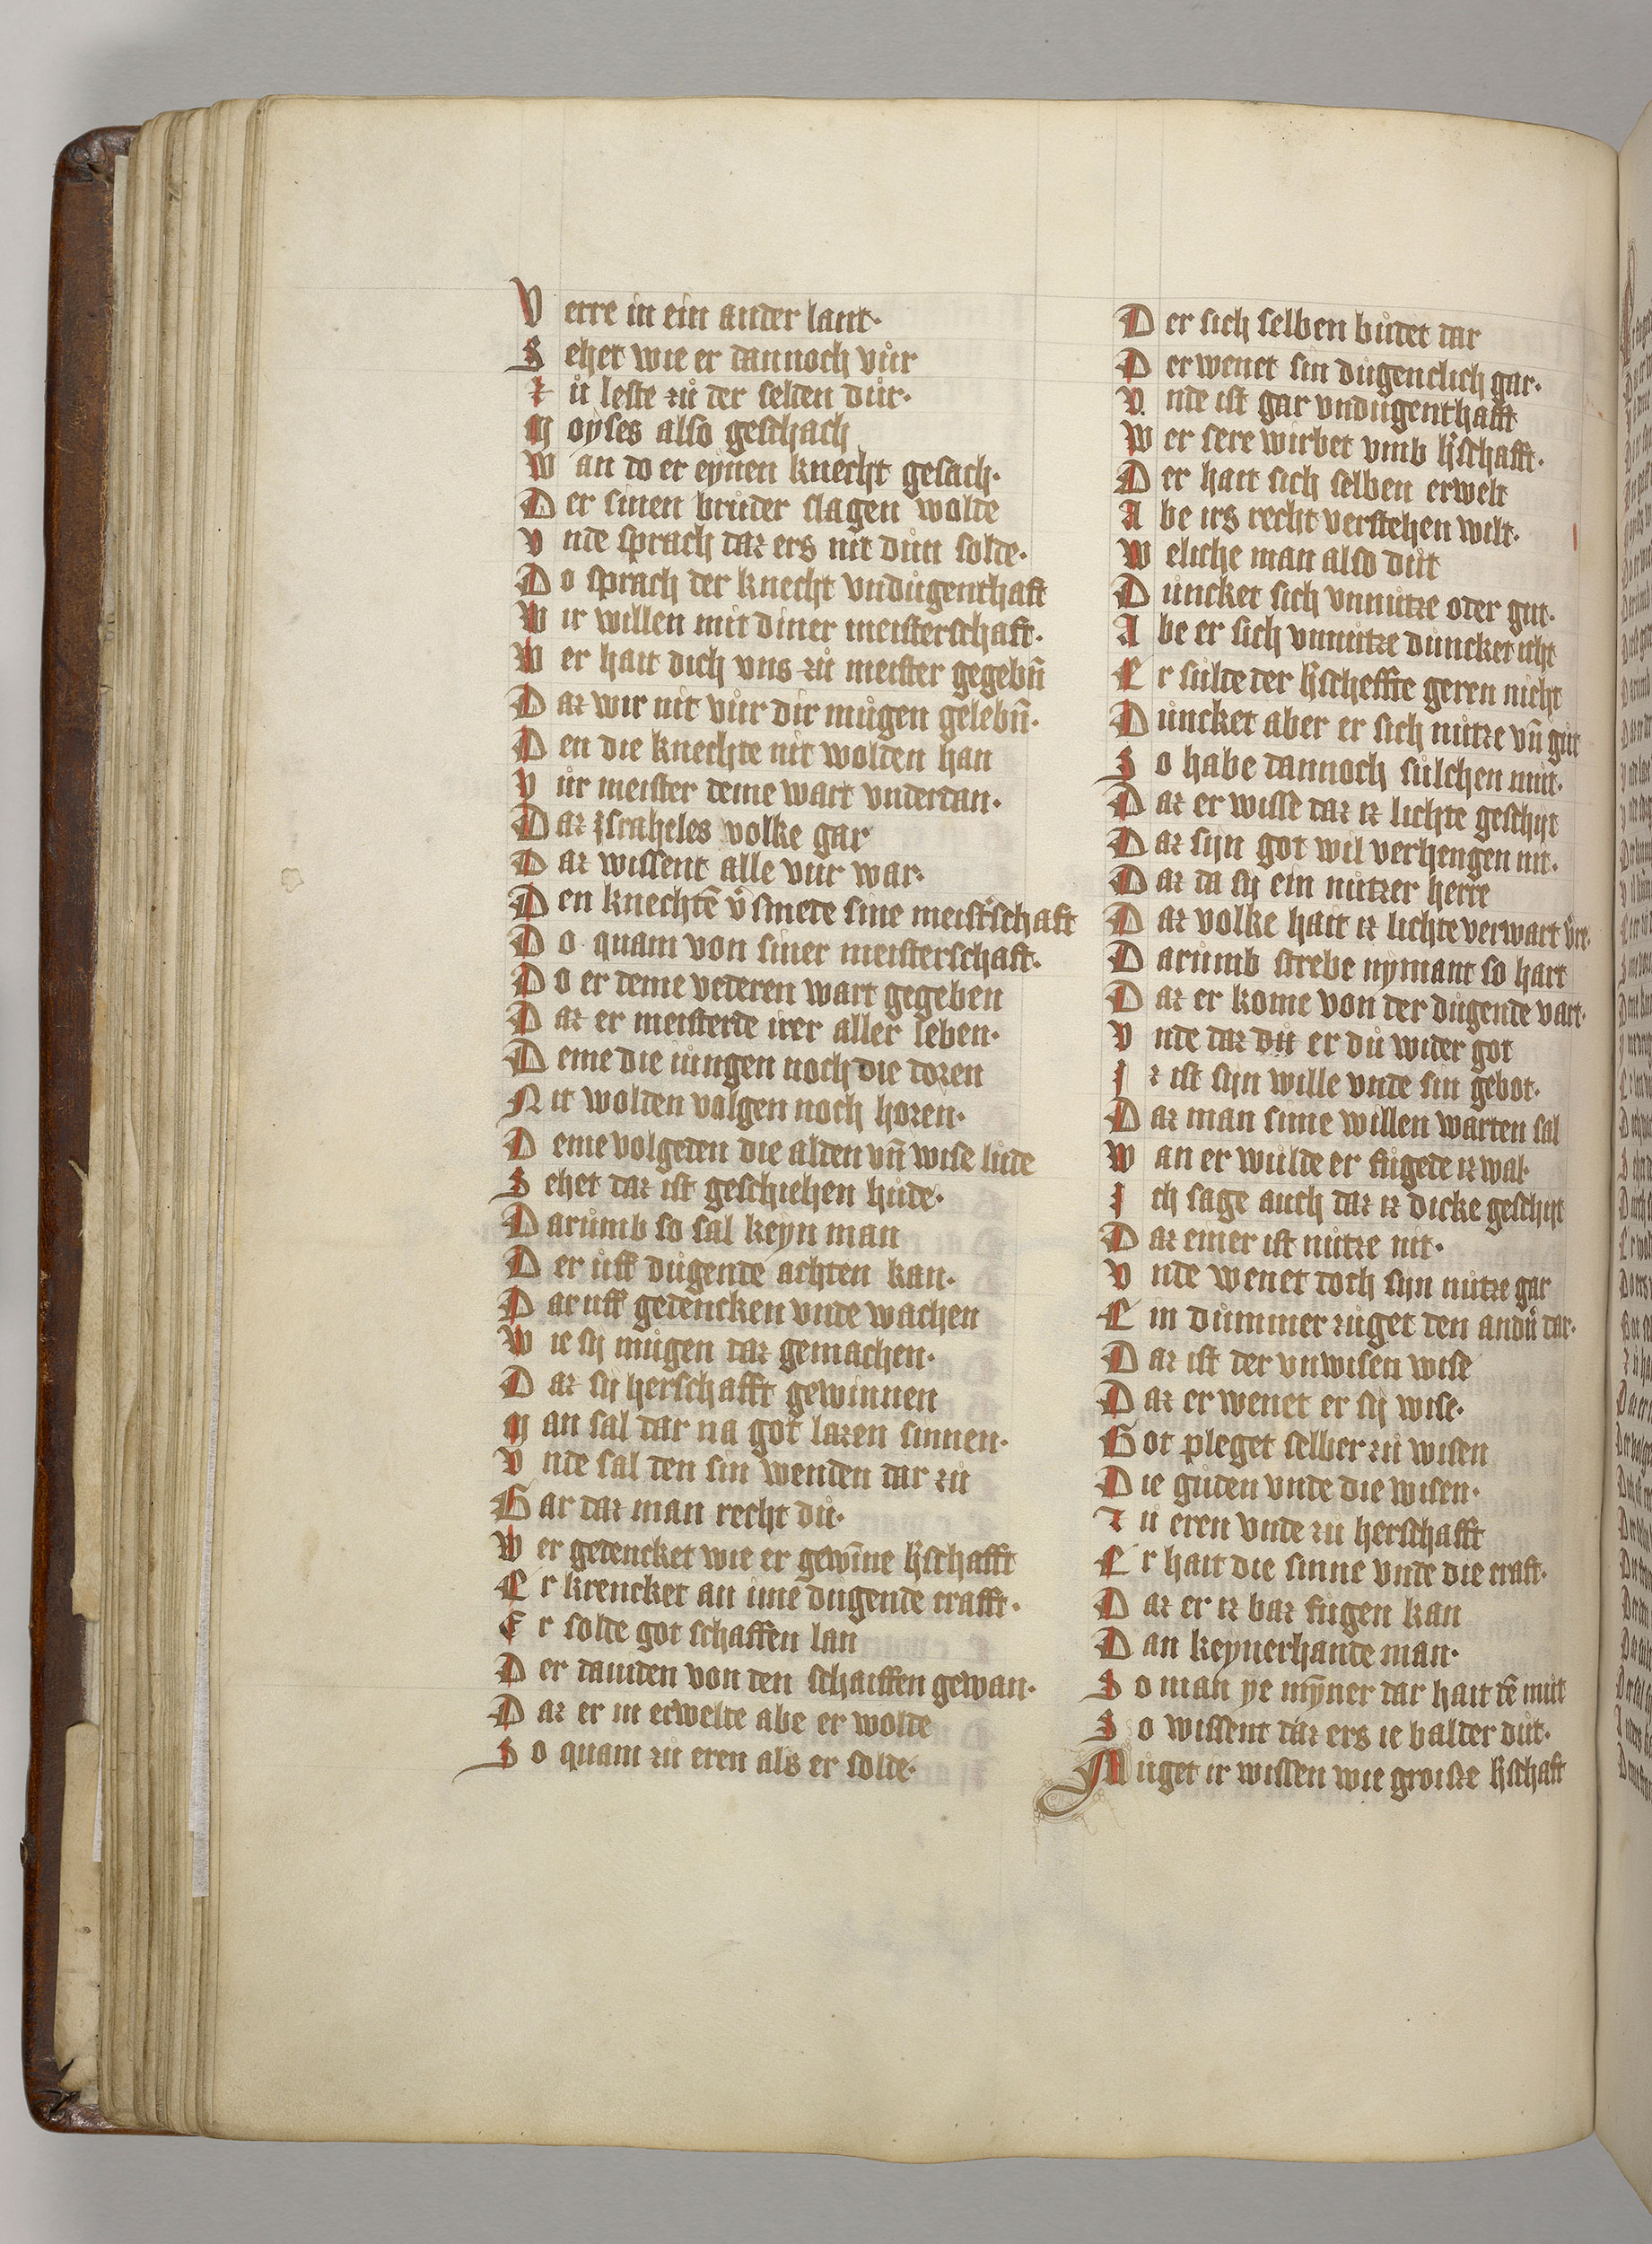 Verre in ein ander lant·
Sehet wie er dannoch vůr
Zů leste zů der selden důr·
Moyses also geschach
Wan do er eynen knecht gesach·
Der sinen brůder slagen wolde
Vnde sprach daz ers nit důn solde·
Do sprach der knecht vndůgenthaft
Wir willen mit diner meisterschaft·
Wer hait dich vns zů meister gegebn̄
Daz wir nit vůr dir můgen gelebn̄·
Den die knechte nit wolden han
Vůr meister deme wart vnderdan·
Daz Israheles volke gar
Daz wissent alle vur war·
Den knechtē v̾smete sine meist̾schaft
Do quam von siner meisterschaft·
Do er deme vederen wart gegeben
Daz er meisterde irer aller leben·
Deme die iůngen noch die doren
Nit wolden volgen noch horen·
Deme volgeden die alden vn̄ wise lůde
Sehet daz ist geschiehen hůde·
Darůmb so sal keyn man
Der ůff důgende achten kan·
Daruff gedencken vnde wachen
Wie sij můgen daz gemachen·
Daz sij herschafft gewinnen
Man sal dar na got lazen sinnen·
Vnde sal den sin wenden dar zů
Gar daz man recht dů·
Wer gedencket wie er gewīne h̾schafft
Er krencket an ime dugende crafft·
Er solde got schaffen lan
Der dauiden von den schaiffen gewan·
Daz er in erwelte abe er wolde
So quam zů eren als er solde·
Der sich selben bůdet dar
Der wenet sin důgenclich gar·
Vnde ist gar vndůgenthafft
Wer sere wirbet vmb h̾schafft·
Der hait sich selben erwelt
Abe irs recht verstehen wilt·
Weliche man also důt
Důncket sich vnnůtze oder gut·
Abe er sich vnnůtze důncket icht
Er sulde der h̾scheffte geren nicht
Důncket aber er sich nůtze vn̄ gůt
So habe dannoch sůlchen můt·
Daz er wisse daz iz lichte geschijt
Daz sijn got wil verhengen nit·
Daz da sij ein nůtzer herre
Daz volke hait iz lichte verwart v̾re·
Darůmb strebe nymant so hart
Daz er kome von der důgende vart·
Vnde daz důt er dů wider got
Iz ist sijn wille vnde sin gebot·
Daz man sime willen warten sal
Wan er wůlde er fůgede iz wal·
Ich sage auch daz iz dicke geschijt
Daz einer ist nůtze nit·
Vnde wenet doch sijn nůtze gar
Ein důmmer zůget den and̾n dar·
Daz ist der vnwisen wise
Daz er wenet er sij wise·
Got pleget selber zů wisen
Die gůden vnde die wisen·
Zů eren vnde zu herschafft
Er hait die sinne vnde die craft·
Daz er iz baz fugen kan
Dan keynerhande man·
So man ye mȳner dar hait dē můt
So wissent daz ers ie balder důt·
Můget ir wissen wie groisze h̾schaft